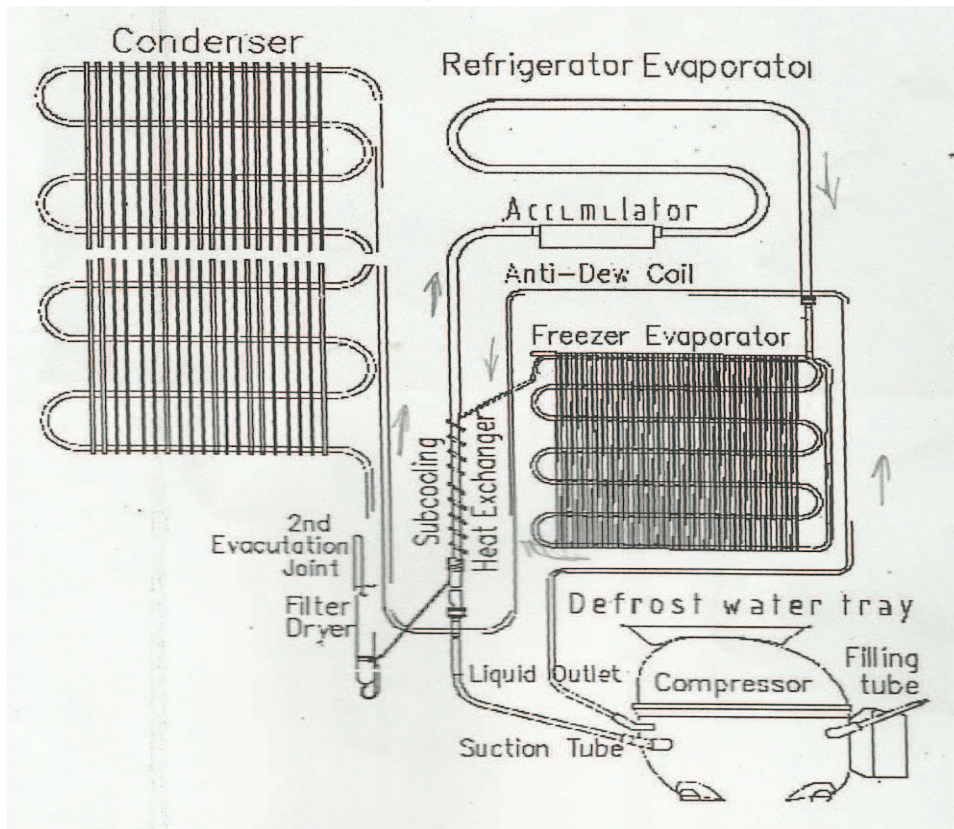 Condenser
Refrigerator Evaporator
Accumulator
Anti-Dew Coil
Freezer Evaporator
Subcooling
Heat Exchanger
2nd
Evacutation
Joint
Filter
Dryer
Defrost water tray
Liquid Outlet
Compressor
Filling
tube
Suction Tube